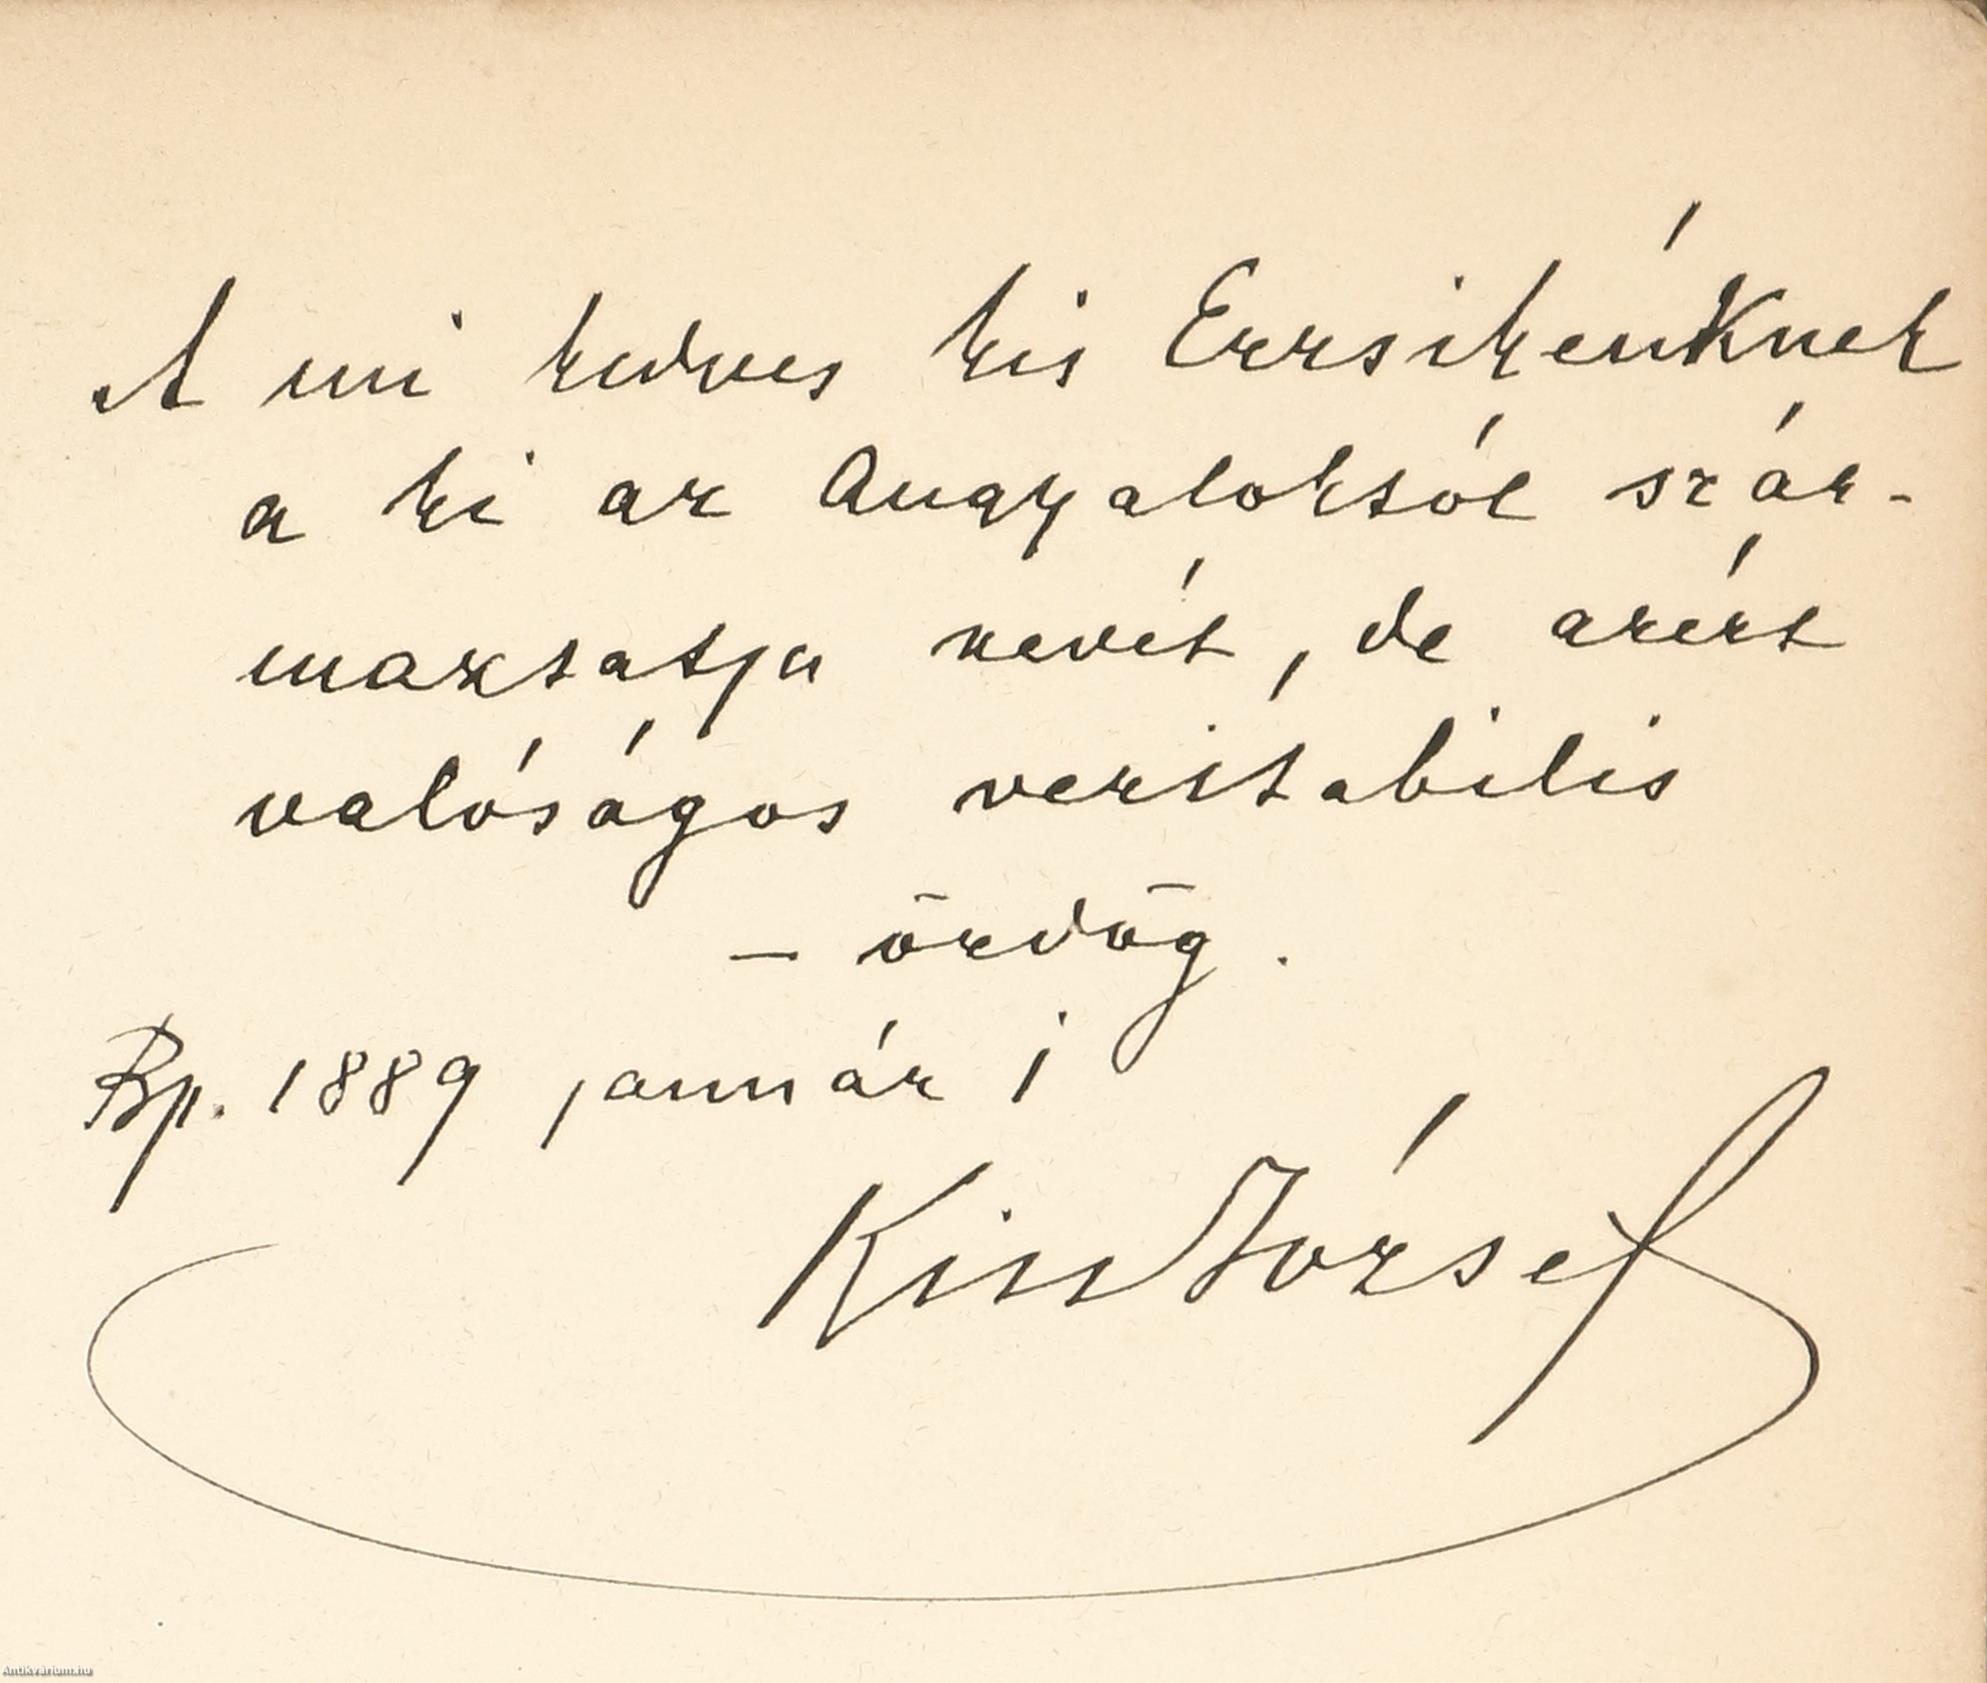 A mi kedves kis Erzsikénknek
a ki az Angyaloktól szár-
maztatja nevét, de azért
valóságos veritabilis
– ördög.
Bp. 1889 január 1
Kiss József
Antikvárium.hu